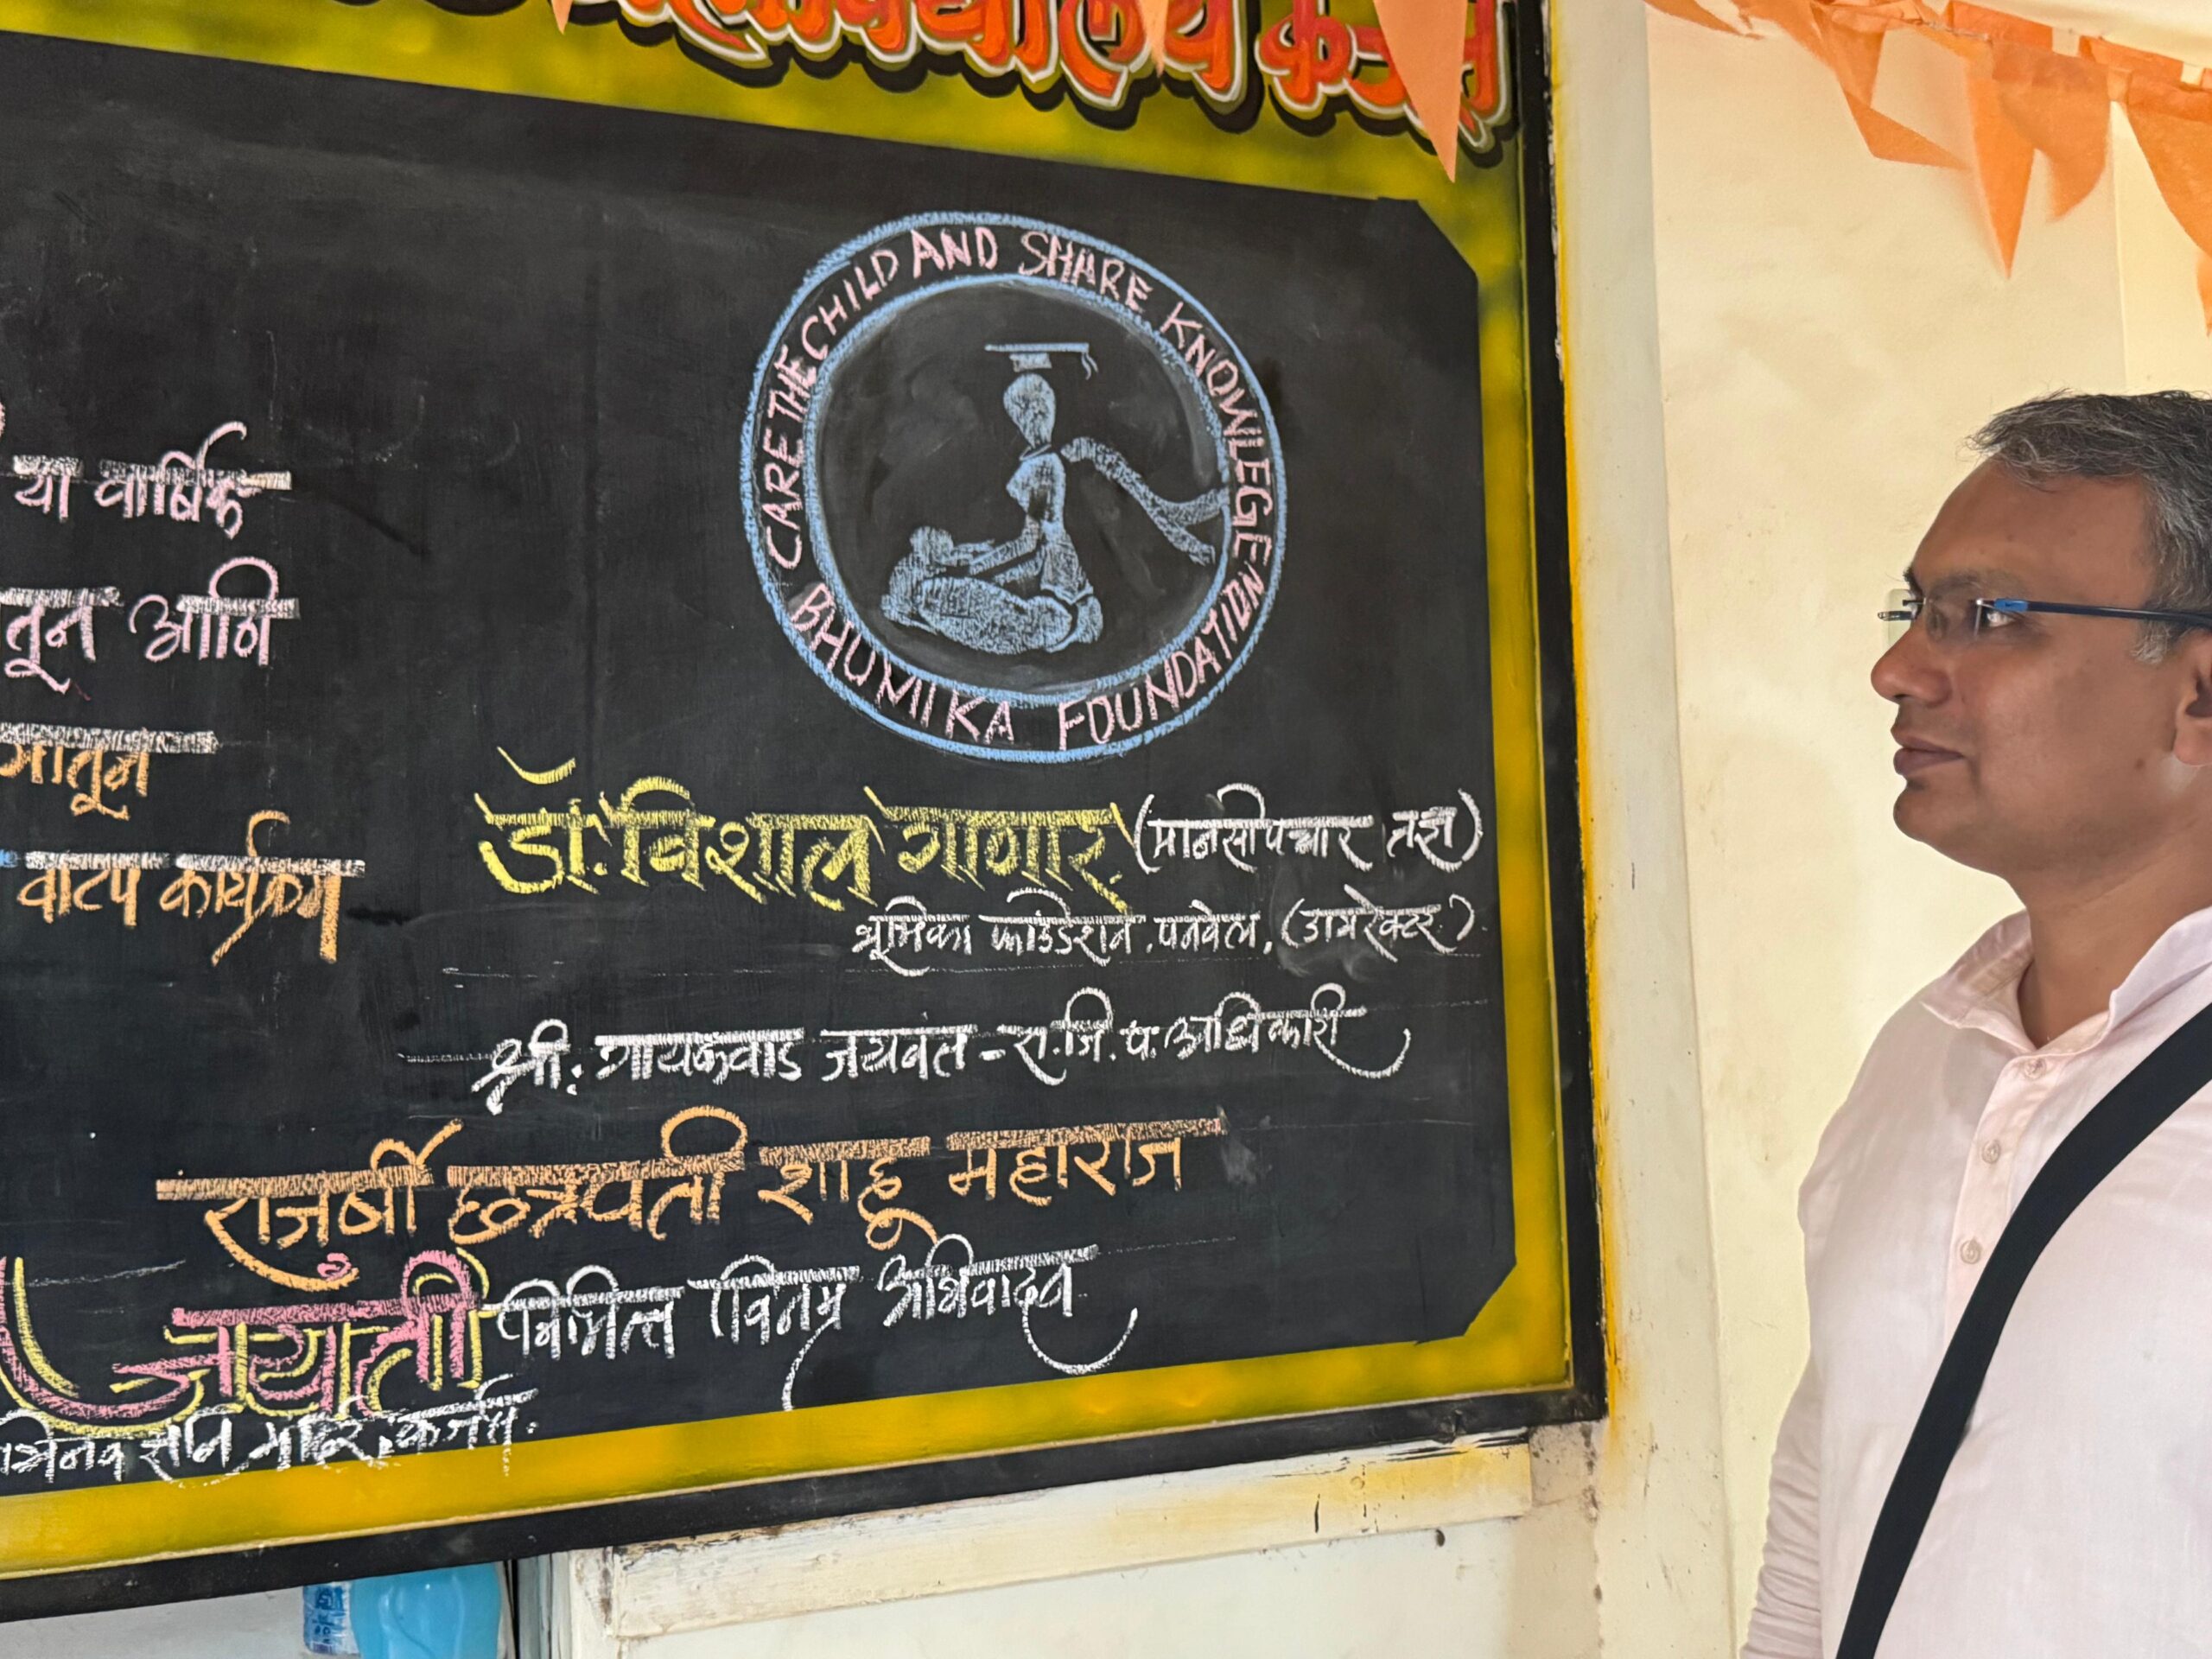 महाविद्यालय कर्जत
CARE THE CHILD AND SHARE KNOWLEGE
BHUMIKA FOUNDATION
या वार्षिक
तून आणि
गातून
वाटप कार्यक्रम
डॉ. विशाल गागार (मानसोपचार तज्ञ)
भूमिका फाउंडेशन, पनवेल, (डायरेक्टर)
श्री: गायकवाड जयवंत - रा. जि. प. अधिकारी
राजर्षी छत्रपती शाहू महाराज
जयंती निमित्त विनम्र अभिवादन
मंदिर, कर्जत.